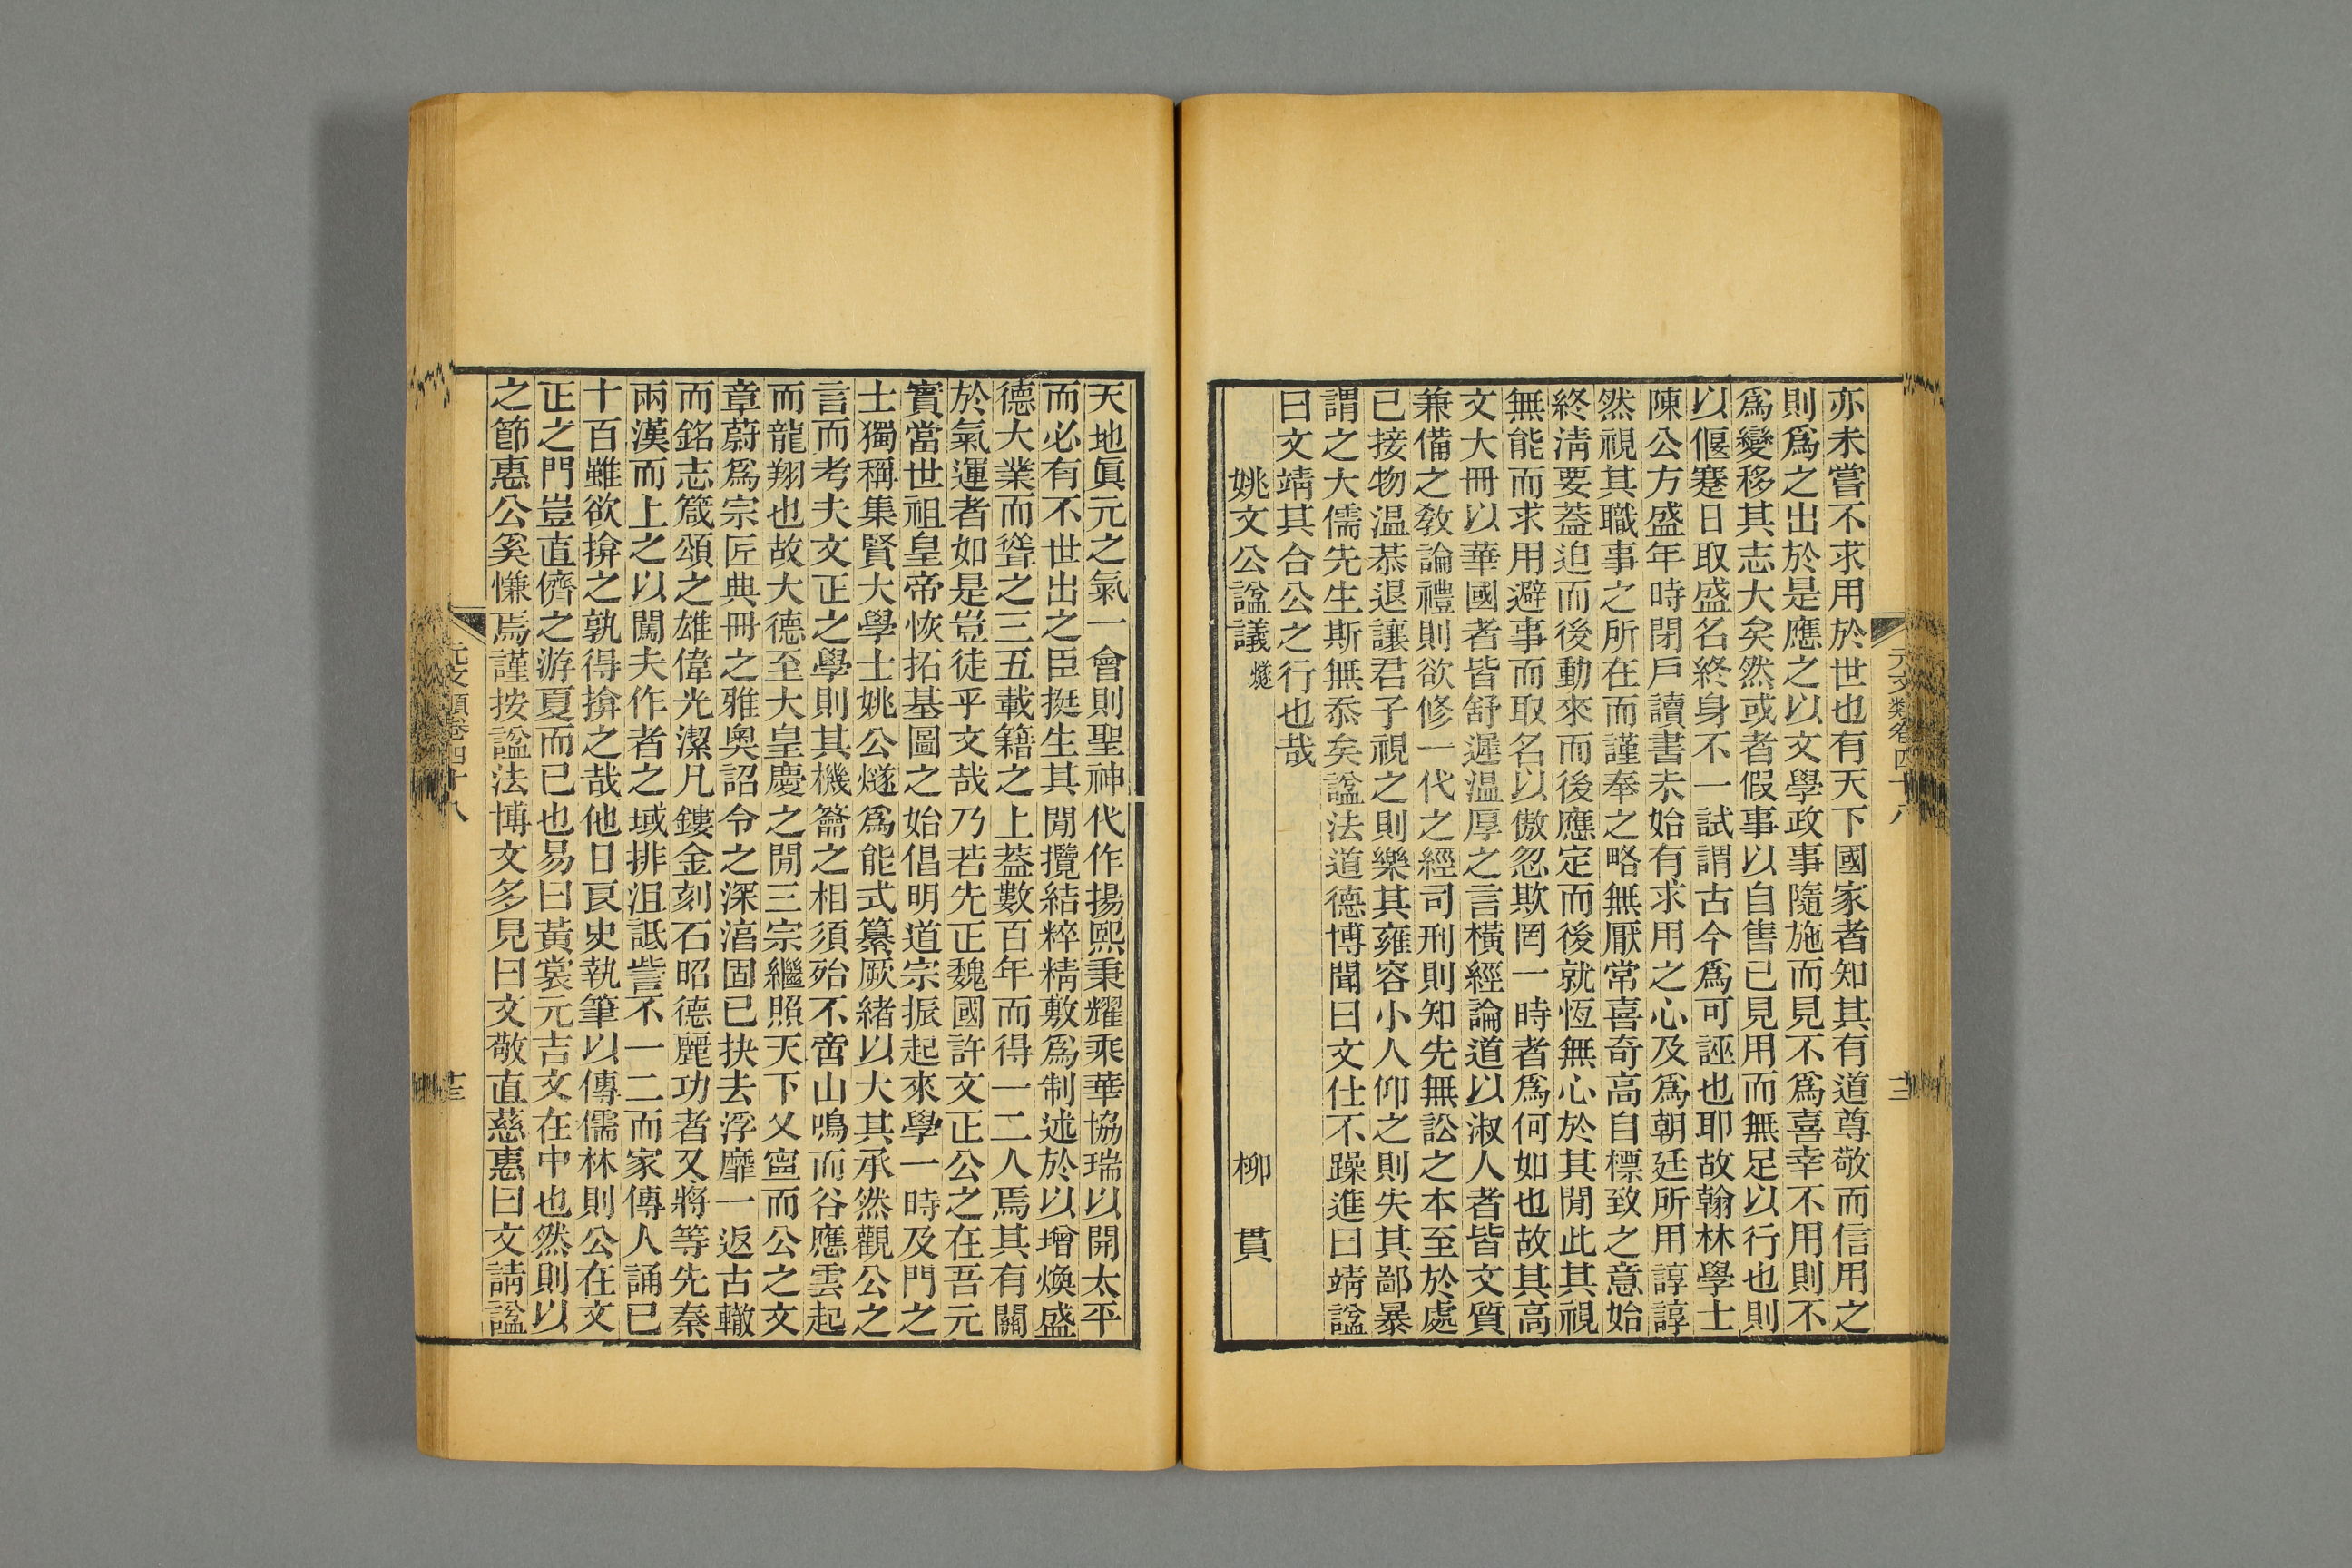 元文類卷四十八
十二
亦未嘗不求用於世也有天下國家者知其有道尊敬而信用之
則爲之出於是應之以文學政事隨施而見不爲喜幸不用則不
爲變移其志大矣然或者假事以自售已見用而無足以行也則
以偃蹇日取盛名終身不一試謂古今爲可誣也耶故翰林學士
陳公方盛年時閉戶讀書未始有求用之心及爲朝廷所用諄諄
然視其職事之所在而謹奉之略無厭常喜奇高自標致之意始
終淸要葢迫而後動來而後應定而後就恆無心於其閒此其視
無能而求用避事而取名以傲忽欺罔一時者爲何如也故其高
文大冊以華國者皆舒遲温厚之言橫經論道以淑人者皆文質
兼備之敎論禮則欲修一代之經司刑則知先無訟之本至於處
已接物温恭退讓君子視之則樂其雍容小人仰之則失其鄙暴
謂之大儒先生斯無忝矣諡法道德博聞曰文仕不躁進曰靖諡
曰文靖其合公之行也哉
姚文公諡議燧 柳貫
天地眞元之氣一會則聖神代作揚熙秉耀乘華協瑞以開太平
而必有不世出之臣挺生其閒攬結粹精敷爲制述於以增煥盛
德大業而聳之三五載籍之上葢數百年而得一二人焉其有關
於氣運者如是豈徒乎文哉乃若先正魏國許文正公之在吾元
實當世祖皇帝恢拓基圖之始倡明道宗振起來學一時及門之
士獨稱集賢大學士姚公燧爲能式纂厥緒以大其承然觀公之
言而考夫文正之學則其機籥之相須殆不啻山鳴而谷應雲起
而龍翔也故大德至大皇慶之閒三宗繼照天下乂寍而公之文
章蔚爲宗匠典冊之雅奧詔令之深湻固已抉去浮靡一返古轍
而銘志箴頌之雄偉光潔凡鏤金刻石昭德麗功者又將等先秦
兩漢而上之以闖夫作者之域排沮詆訾不一二而家傳人誦已
十百雖欲揜之孰得揜之哉他日良史執筆以傳儒林則公在文
正之門豈直儕之游夏而已也易曰黃裳元吉文在中也然則以
之節惠公奚慊焉謹按諡法博文多見曰文敬直慈惠曰文請諡
元文類卷四十八
十三